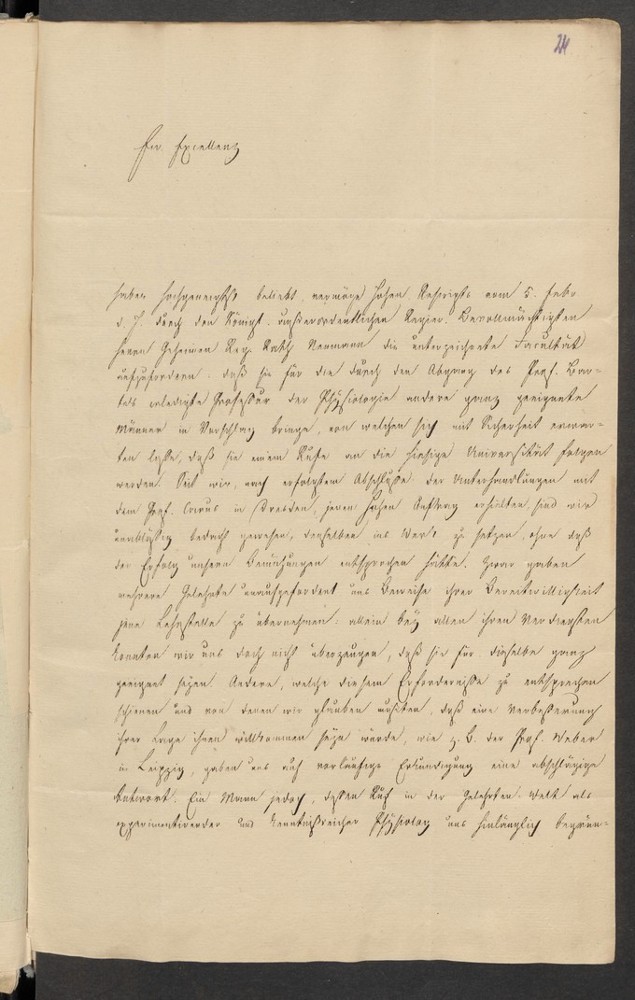 24
Ew. Excellenz
haben hochgeneigtest beliebt, vermöge hohen Rescripts vom 5. Febr
d. J. durch den Königl. außerordentlichen Regier. Bevollmächtigten
Herrn Geheimen Reg. Rath Neumann die unterzeichnete Facultät
aufzufordern, daß sie für die durch den Abgang des Prof. Bar-
tels erledigte Professur der Physiologie andere ganz geeignete
Männer in Vorschlag bringe, von welchen sich mit Sicherheit erwar-
ten lasse, daß sie einem Rufe an die hiesige Universität folgen
werden. Seit wir, nach erfolgtem Abschlusse der Unterhandlungen mit
dem Prof. Carus in Dresden, jenen hohen Auftrag erhielten, sind wir
unablässig bedacht gewesen, denselben ins Werk zu setzen, ohne daß
der Erfolg unsern Bemühungen entsprochen hätte. Zwar gaben
mehrere Gelehrte unaufgefordert uns Beweise ihrer Bereitwilligkeit
jene Lehrstelle zu übernehmen: allein bey allen ihren Verdiensten
konnten wir uns doch nicht überzeugen, daß sie für dieselbe ganz
geeignet seyen. Andere, welche diesem Erfordernisse zu entsprechen
schienen und von denen wir glauben mußten, daß eine Verbesserung
ihrer Lage ihnen willkommen seyn würde, wie z. B. der Prof. Weber
in Leipzig, gaben uns auf vorläufige Erkundigung eine abschlägige
Antwort. Ein Mann jedoch, dessen Ruf in der gelehrten Welt als
experimentirender und kenntnißreicher Physiolog uns hinlänglich begrün-